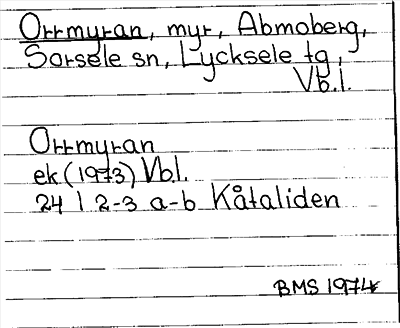 Orrmyran, myr, Abmoberg,
Sorsele sn, Lycksele tg,
Vb.l.
Orrmyran
ek (1973) Vb.l.
24 I 2-3 a-b Kåtaliden
BMS 1974